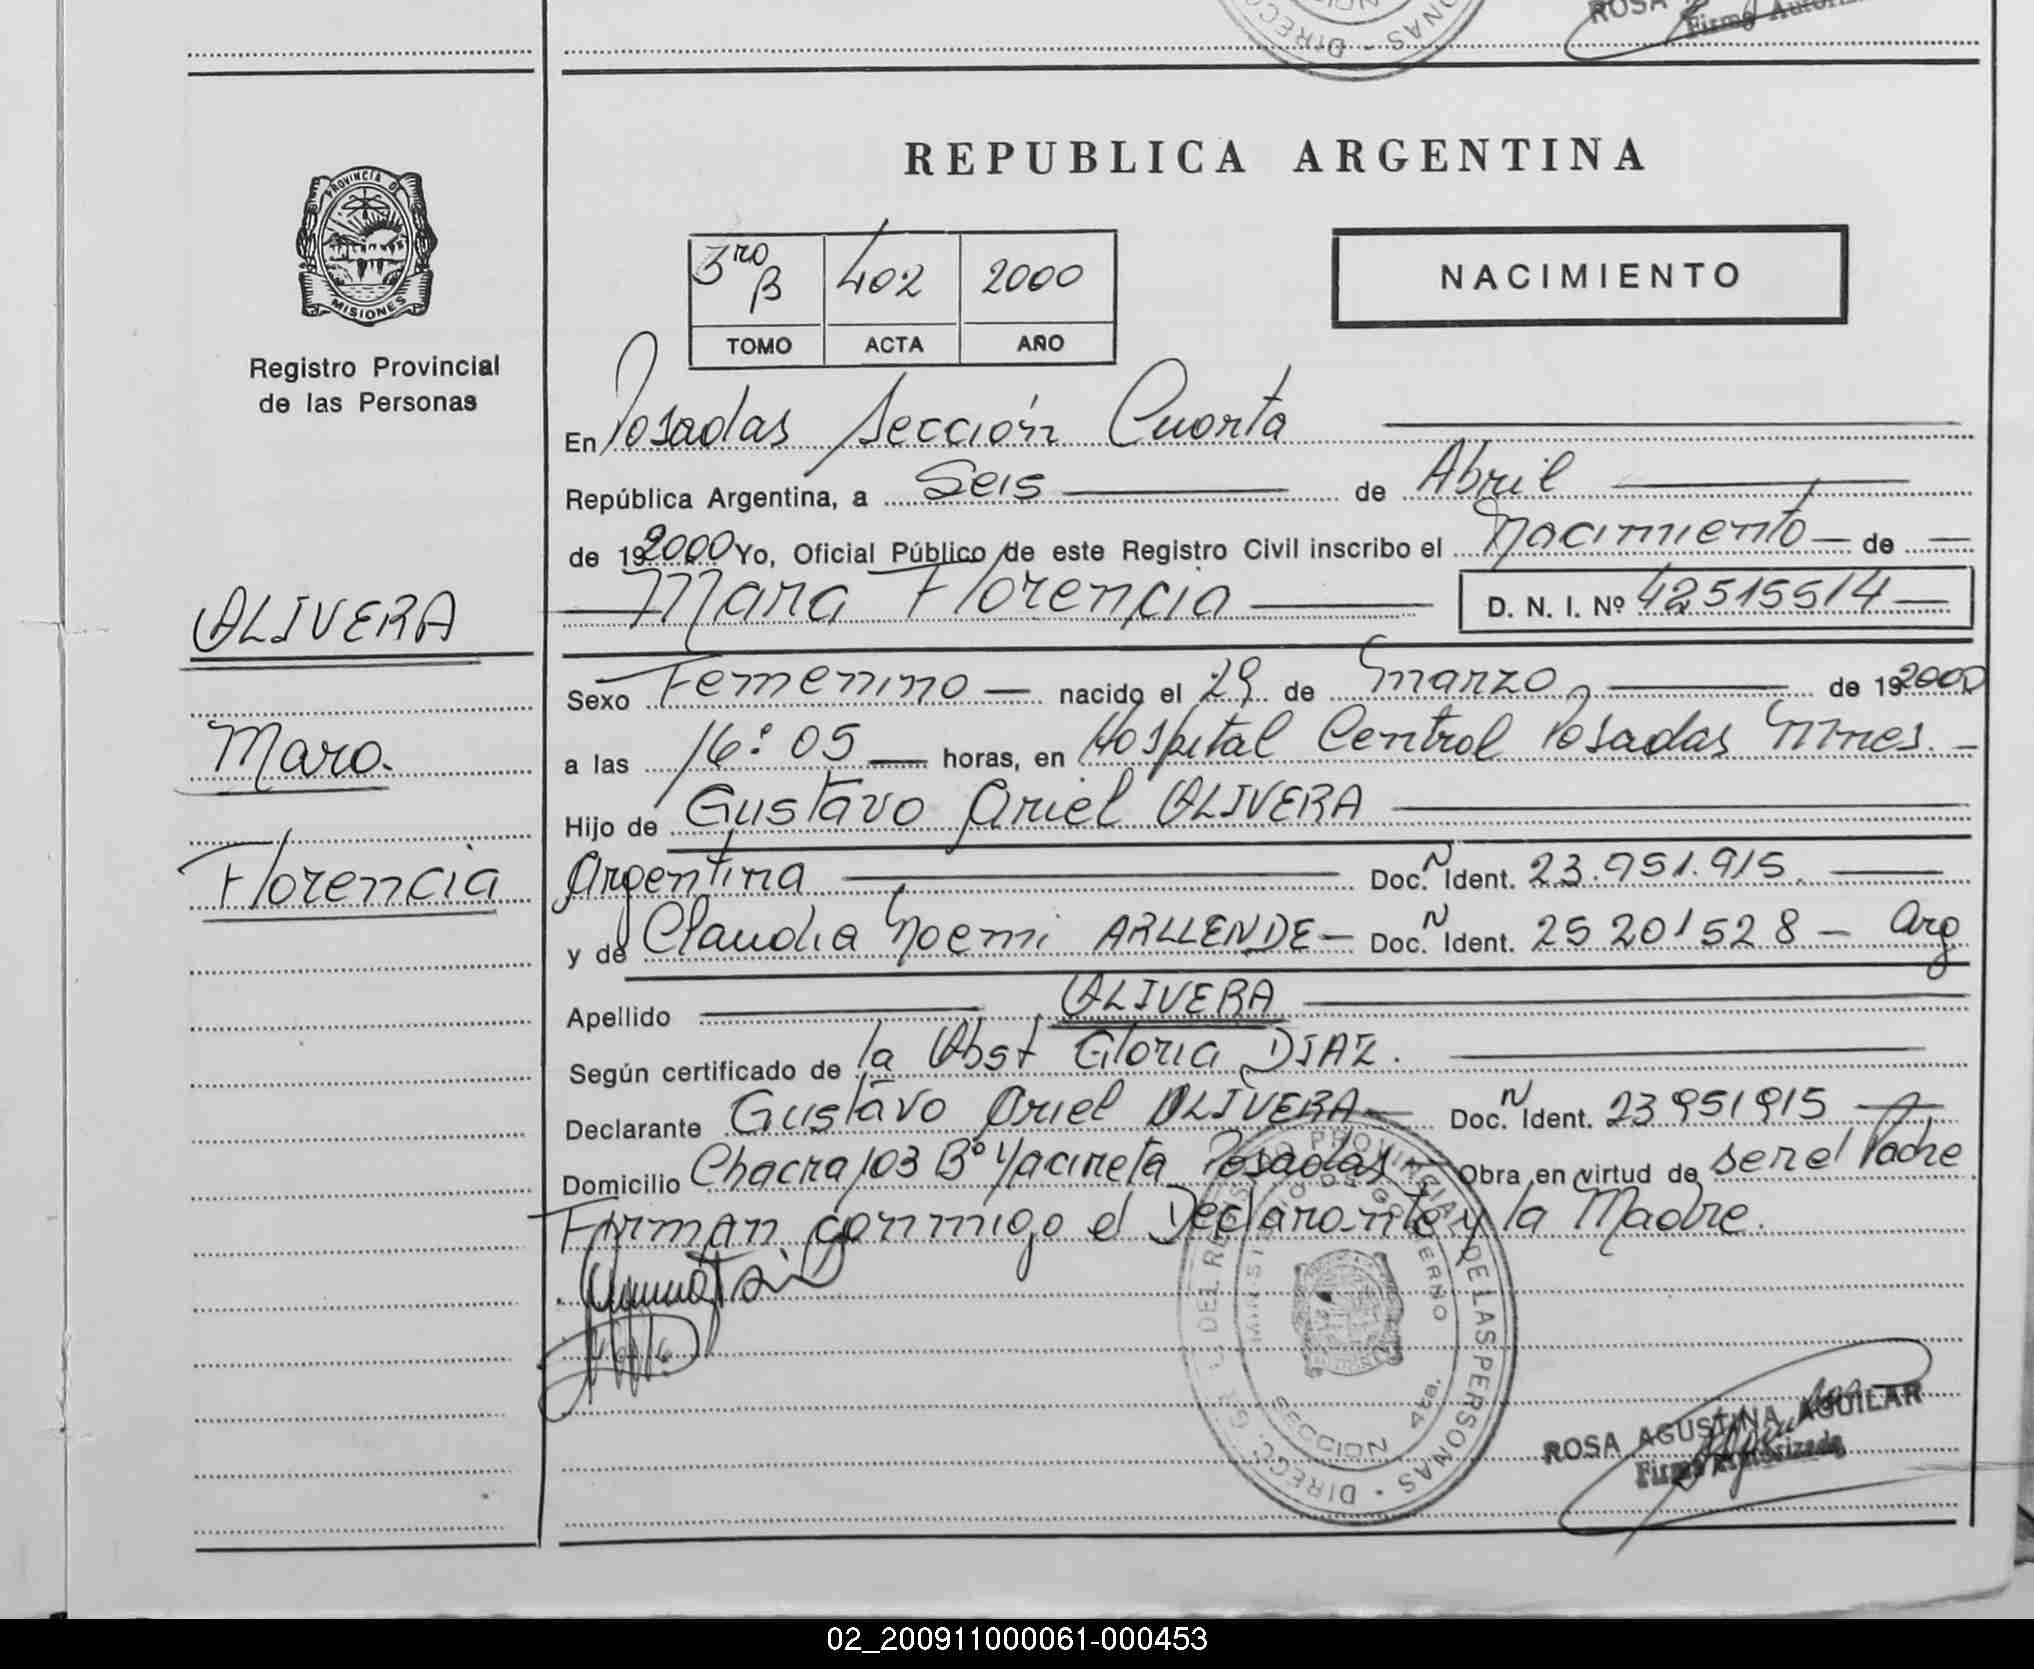 ROSA
Firma Autoriz
PROVINCIA DE
MISIONES
Registro Provincial
de las Personas
REPUBLICA ARGENTINA
3ro B 402 2000
TOMO ACTA AÑO
NACIMIENTO
En Posadas Sección Cuarta
República Argentina, a Seis de Abril
de 192000 Yo, Oficial Público de este Registro Civil inscribo el Nacimiento de
Mara Florencia D. N. I. Nº 42515514
OLIVERA
Mara
Florencia
Sexo Femenino nacido el 29 de Marzo de 192000
a las 16:05 horas, en Hospital Central Posadas Mnes.
Hijo de Gustavo Ariel OLIVERA
Argentina Doc. N Ident. 23.951.915.
y de Claudia Noemi ARLLENDE Doc. N Ident. 25 201528 Arg
Apellido OLIVERA
Según certificado de la Obst Gloria DIAZ.
Declarante Gustavo Ariel OLIVERA Doc. N Ident. 23951915
Domicilio Chacra 103 Bº Yacireta Posadas Obra en virtud de ser el Padre
Firman conmigo el Declarante y la Madre.
DIRECC. GRAL. DEL REGISTRO PROVINCIAL DE LAS PERSONAS
MINISTERIO DE GOBIERNO
SECCION 4ta.
ROSA AGUSTINA AGUILAR
Firma Autorizada
02_200911000061-000453